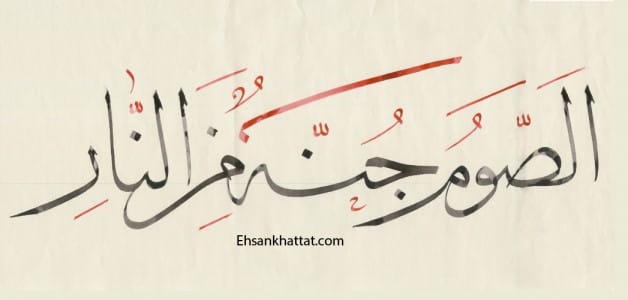 الصَّوْمُ جُنَّةٌ مِنَ النَّارِ
Ehsankhattat.com